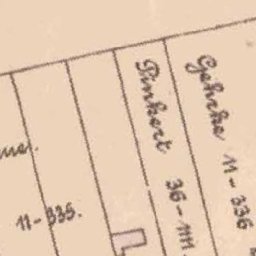 me.
11-335.
Pinkert 36-1111.
Gehrke 11-336